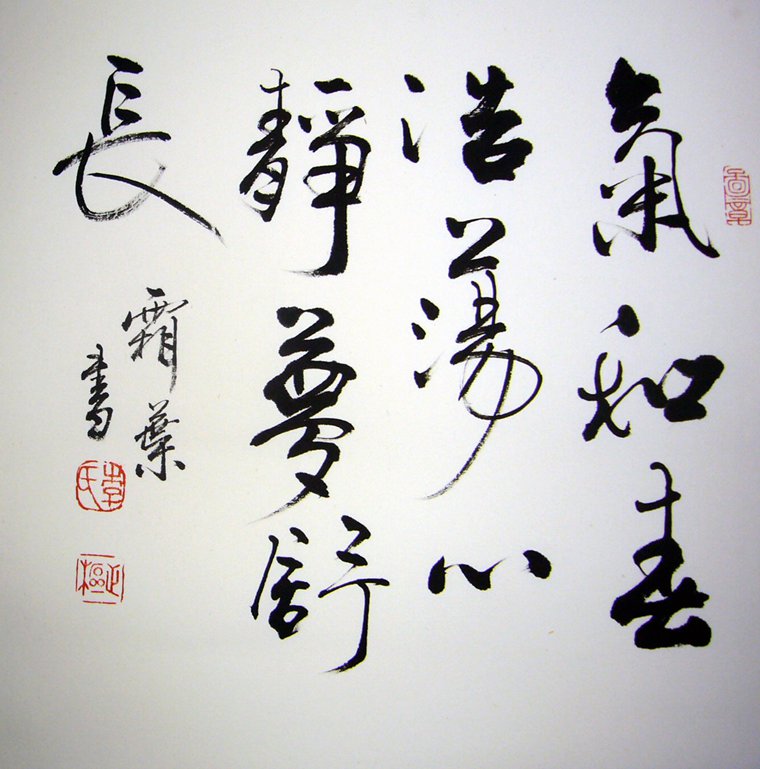 氣和春
浩蕩心
靜夢舒
長
霜葉
書
李氏